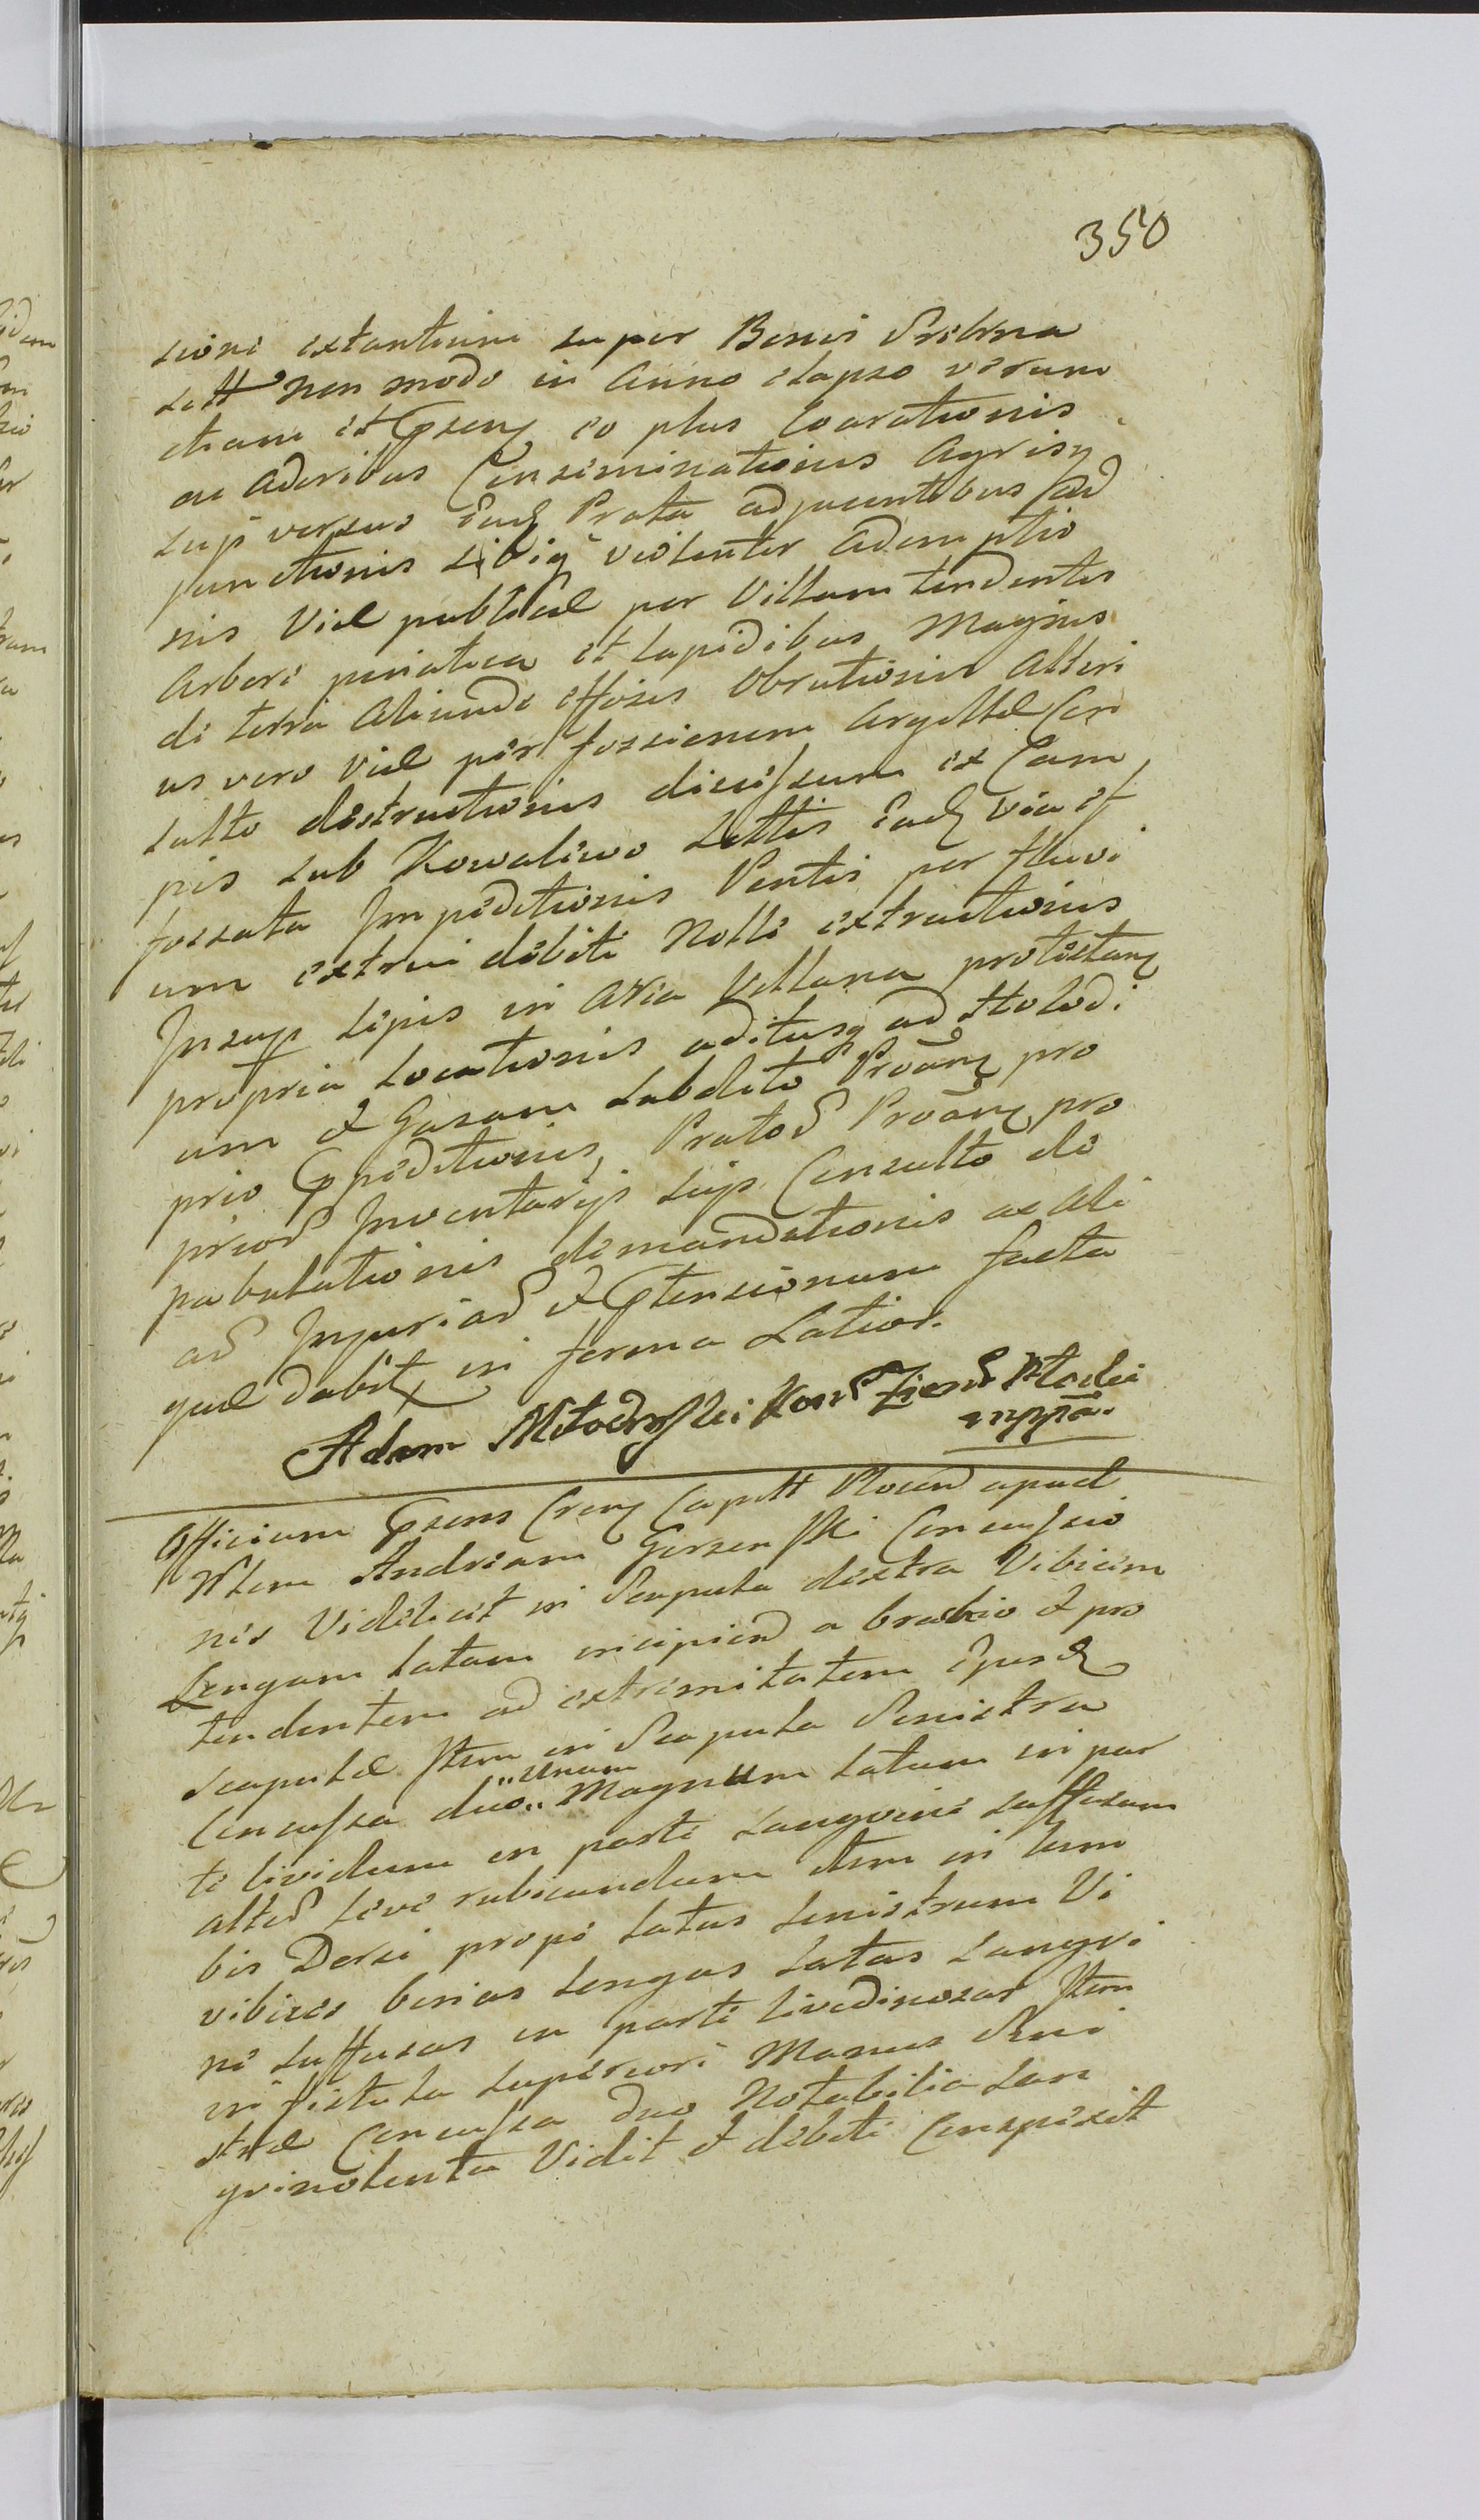 350
sioni extantium super Bonis Srebrna
sett non modo in Anno elapso verum
etiam et pzen eo plus Coarationis
ac Aderibus Conseminationis Agrisq
sup versus Ead Prata adjacentibus ad
junctionis sibiq violenter ademptio
nis Viæ publicæ per Villam tendentis
Arbore et Lapidibus Magnis
de terra aliunde effosis Obrutionis Alteri
us vero Viæ per fossionem Argillæ Con
sulto destructionis ex Cam
pis sub Kowalewo Settis Ead via et
fossata Impeditionis Pontis per fluvi
um extrui debiti Nolle extructionis
Insup Sepis in Area Villana protestan
propria Locationis aditusq ad Holodi
um et Gazam Subdito Proan pro
prio Ppeditionis, Pratos Proan pro
prios Inventarys suis Consulto de
pabulationis demandationis ac ali
as Injurias et Ptensionum facta
quæ dabit in forma Latiori.
Adam Młodzyski
mppa.
Officium Pzens Cren Capitt Plocen apud
Nlem Andream Gorzenski Concussio
nes Videlicet in Scapula dextra Vibicem
Longam latam incipien a brachio et pro
tendentem ad extremitatem Ejusd
Scapulæ Item in Scapula Senistra
Concussa duo "unum" Magnum latum in par
te lividum in parte Sangvine suffusum
alted leve rubicundum Item in Lum
bis Dorsi prope latus Senistrum Vi
vibices binas Longas Latas Sangvi
ne suffusas in parte livedinosas Item
in fistula superiori Manus Seni
stræ Concussa duo Notabilia San
gvinolenta Vidit et debite Conspexit